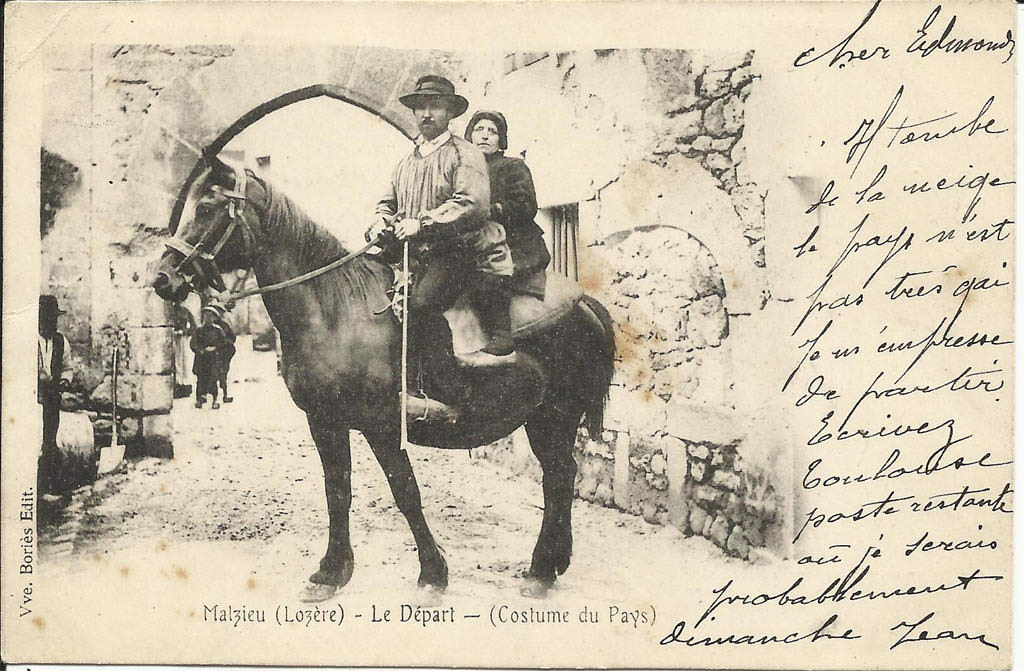 cher Edmond
Il tombe
de la neige
le pays n'est
pas très gai
Je m'empresse
de partir.
Ecrivez
Toulouse
poste restante
où je serais
probablement
dimanche Jean
Vve. Boriès Edit.
Malzieu (Lozère) - Le Départ — (Costume du Pays)